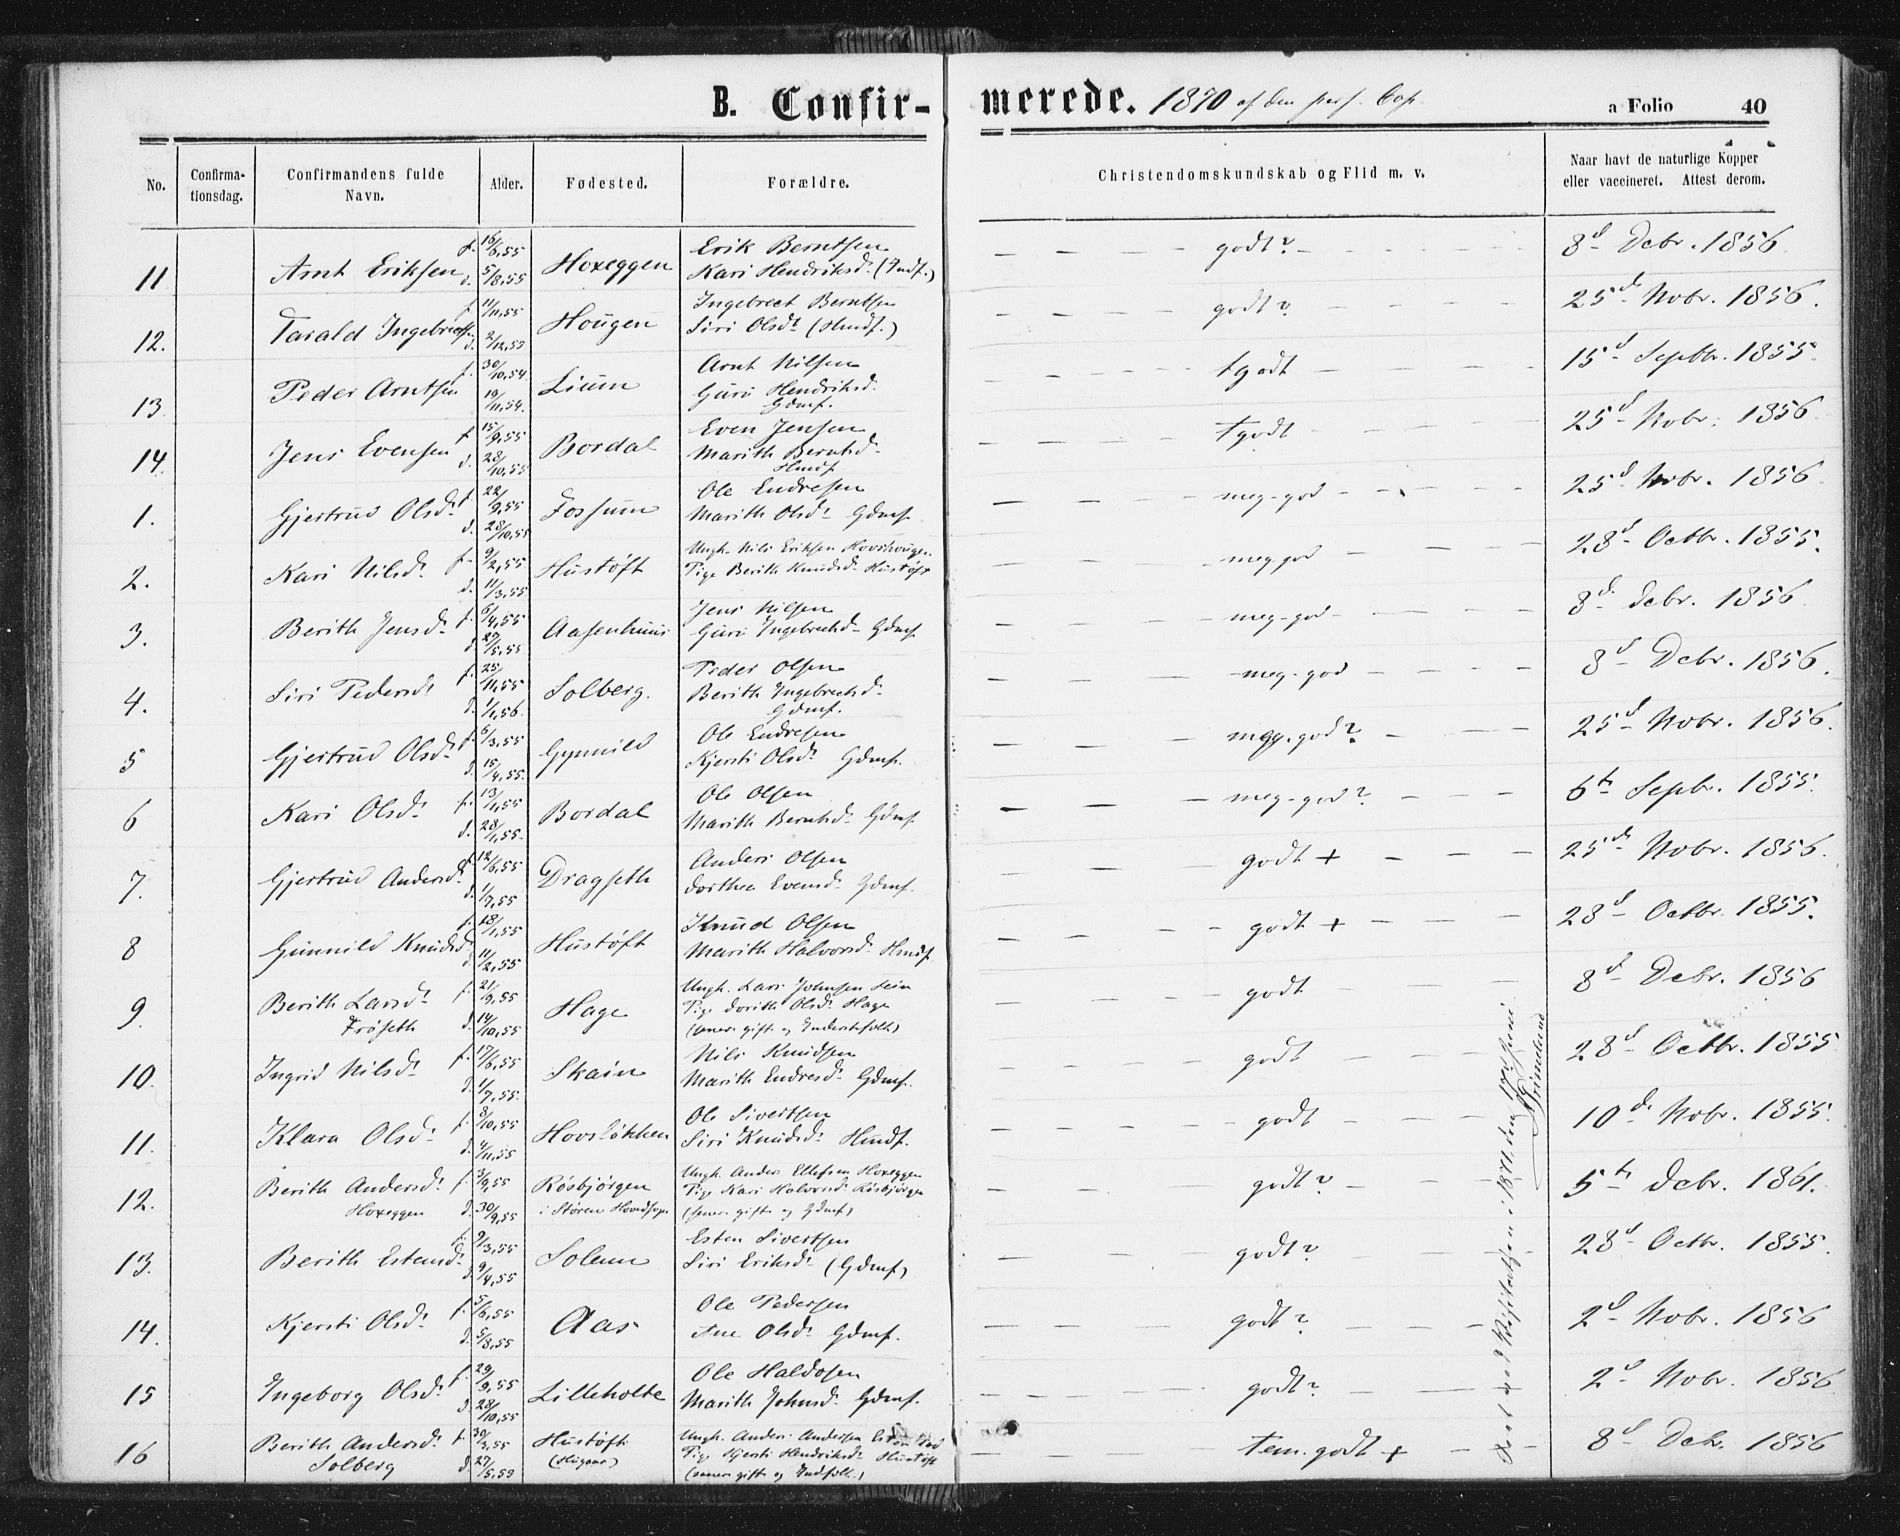 B. Confirmerede. 1870 af den pers. Cap.
a Folio 40
No. Confirmationsdag. Confirmandens fulde Navn. Alder. Fødested. Forældre. Christendomskundskab og Flid m. v. Naar havt de naturlige Kopper eller vaccineret. Attest derom.
11 Arnt Eriksen f. 16/6,55 d. 5/8,55 Hoxeggen Erik Berntsen Kari Hendriksd. (Indf.) godt? 8d Debr. 1856
12. Tarald Ingebrectsen f. 11/11,55 d. 2/12,55 Hougen Ingebrect Berntsen Siri Olsdt (Hmdf.) godt? 25d Nobr. 1856.
13. Peder Arntsen f. 30/10,54 19/11,54. Lium Arnt Nilsen Guru Hendriksd. Gdmf. tgodt 15d Septbr. 1855.
14. Jens Evensen f. 15/9,55 d. 28/10,55 Bordal Even Jensen Marith Berntsd. Hmdf tgodt 25d Nobr. 1856
1. Gjertrud Olsdt f. 22/9,55 d. 28/10,55 Fossum Ole Endresen Marith Olsdt Gdmf. meg-god 25d Nobr. 1856
2. Kari Nilsdt f. 9/2,55 d. 11/3,55 Hustøft Ungk. Nils Eriksen Hovshougen. Pige Berith Knudsd. Hustøft meg god 28d Octbr. 1855.
3. Berith Jensdt f. 6/4,55 d. 27/5,55 Aasenhuus Jens Nilsen Guru Ingebrectsd. Gdmf. meg-god 8d Debr. 1856
4. Siri Pedersdt f. 25/11,55 d. 1/1,56. Solberg. Peder Olsen Berith Ingebrectsd. Gdmf. meg-god 8d Debr. 1856.
5 Gjertrud Olsdt f. 6/3,55 d. 15/4,55. Gynnild Ole Endresen Kjersti Olsdt Gdmf. meg. god? 25d Nobr. 1856.
6 Kari Olsdt f. 13/1,55 d. 28/1,55. Bordal Ole Olsen Marith Berntsd. Gdmf. meg-god? 6te Sepbr. 1855.
7. Gjertrud Andersdt f. 12/6,55 d. 1/7,55 Dragseth Anders Olsen Dorthea Evensd. Gdmf. godt + 25d Nobr. 1856.
8 Gunnild Knudsd. f. 18/1,55 d. 11/2,55 Hustøft Knud Olsen Marith Halvorsd. Hmdf godt + 28d Octbr. 1855.
9. Berith Larsdt Frøseth f. 21/9,55 d. 14/10,55 Hage Ungk. Lars Johnsen Lein Pige Dorith Olsdt Hage (senere gift og Inderstfolk) godt 8d Debr. 1856
10. Ingrid Nilsdt f. 17/6,55 d. 1/7,55. Skain Nils Knudsen Marith Endresd. Gdmf. godt 28d Octbr. 1855
11. Klara Olsdt f. 8/10,55 d. 4/11,55 Hovsløkken Ole Sivertsen Siri Knudsdt Hmdf. godt 10de Nobr. 1855.
12. Berith Andersdt Hoxeggen f. 3/9,55 d. 30/9,55 Røsbjørgen i Støren Hovedsogn Ungk. Anders Ellefsen Hoxeggen Pige Kari Halvorsd. Røsbjørgen (senere gift og Gdmf) godt? 5te Debr. 1861.
13. Berith Estensdt f. 9/3,55 d. 9/4,55 Solem Esten Sivertsen Siri Eriksdt (Gdmf) godt? 28d Octbr. 1855.
14. Kjersti Olsdt f. 5/6,55 d. 5/8,55 Aas Ole Pedersen Ane Olsdt Gdmf. godt? 2d Nobr. 1856
15 Ingeborg Olsdt f. 29/9,55 d. 28/10,55 Lilleholte Ole Haldosen Marith Johnsd. Gdmf. godt? 2d Nobr. 1856
16 Berith Andersdt Solberg f. 30/3,55 d. 27/5,55 Hustøft Ungk. Anders Andersen Pige Kjersti Hendriksd. Hustøft (senere gift og Indfolk.) tem. godt + 8d Debr. 1856
Læst ved Visitatsen i 1871 den 17de Juni Grimelund